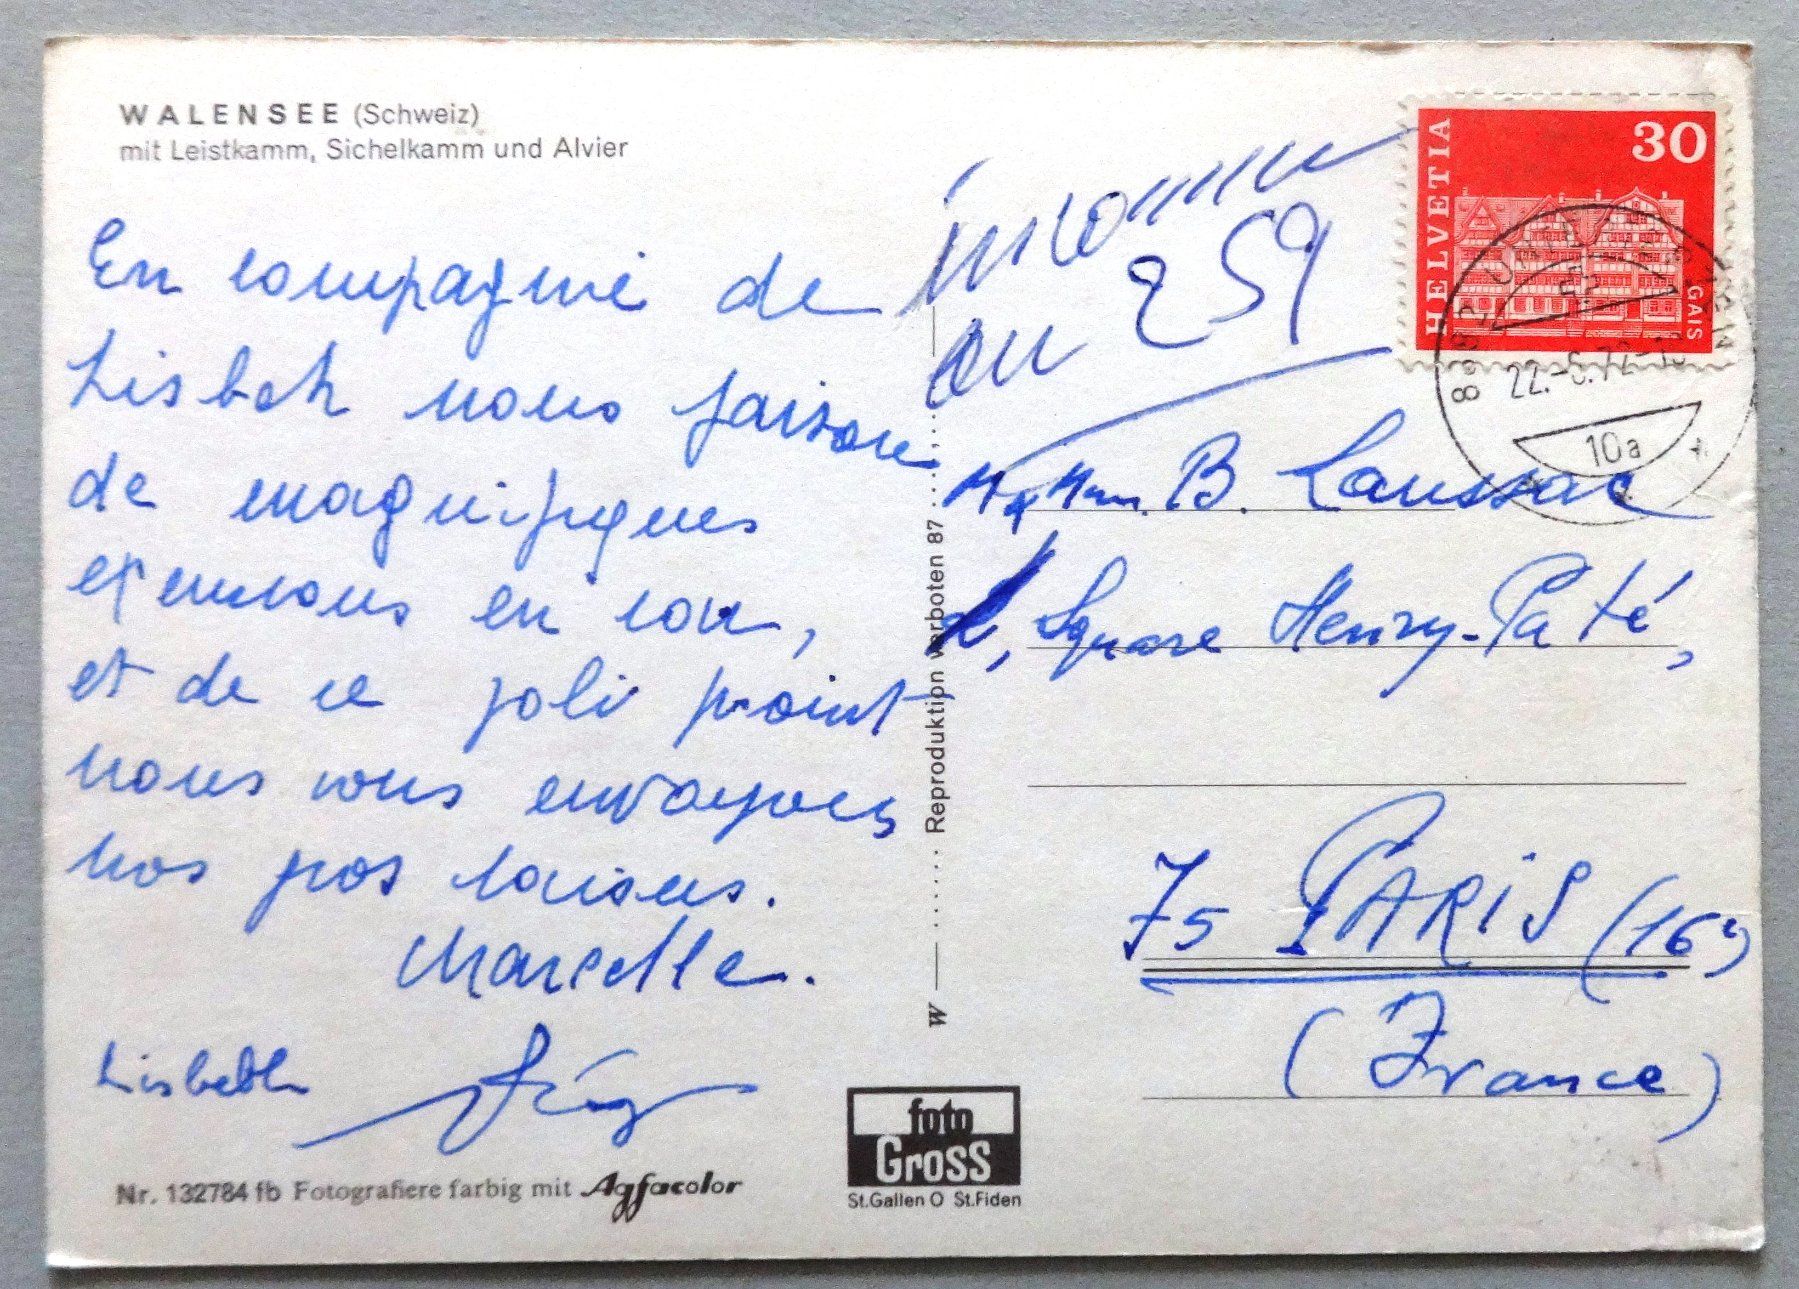 WALENSEE (Schweiz)
mit Leistkamm, Sichelkamm und Alvier
En compagnie de
Lisbeth nous faisons
de magnifiques
excursions en car,
et de ce joli point
nous vous envoyons
nos gros baisers.
Marcelle.
Lisbeth
Nr. 132784 fb Fotografiere farbig mit Agfacolor
W Reproduktion verboten 87
foto
Gross
St.Gallen O St.Fiden
inconnu
au 259
HELVETIA
30
GAIS
22.-6.72-
10a
M et Mme. B. Laussac
2, Square Henry-Paté,
75 PARIS (16e)
(France)